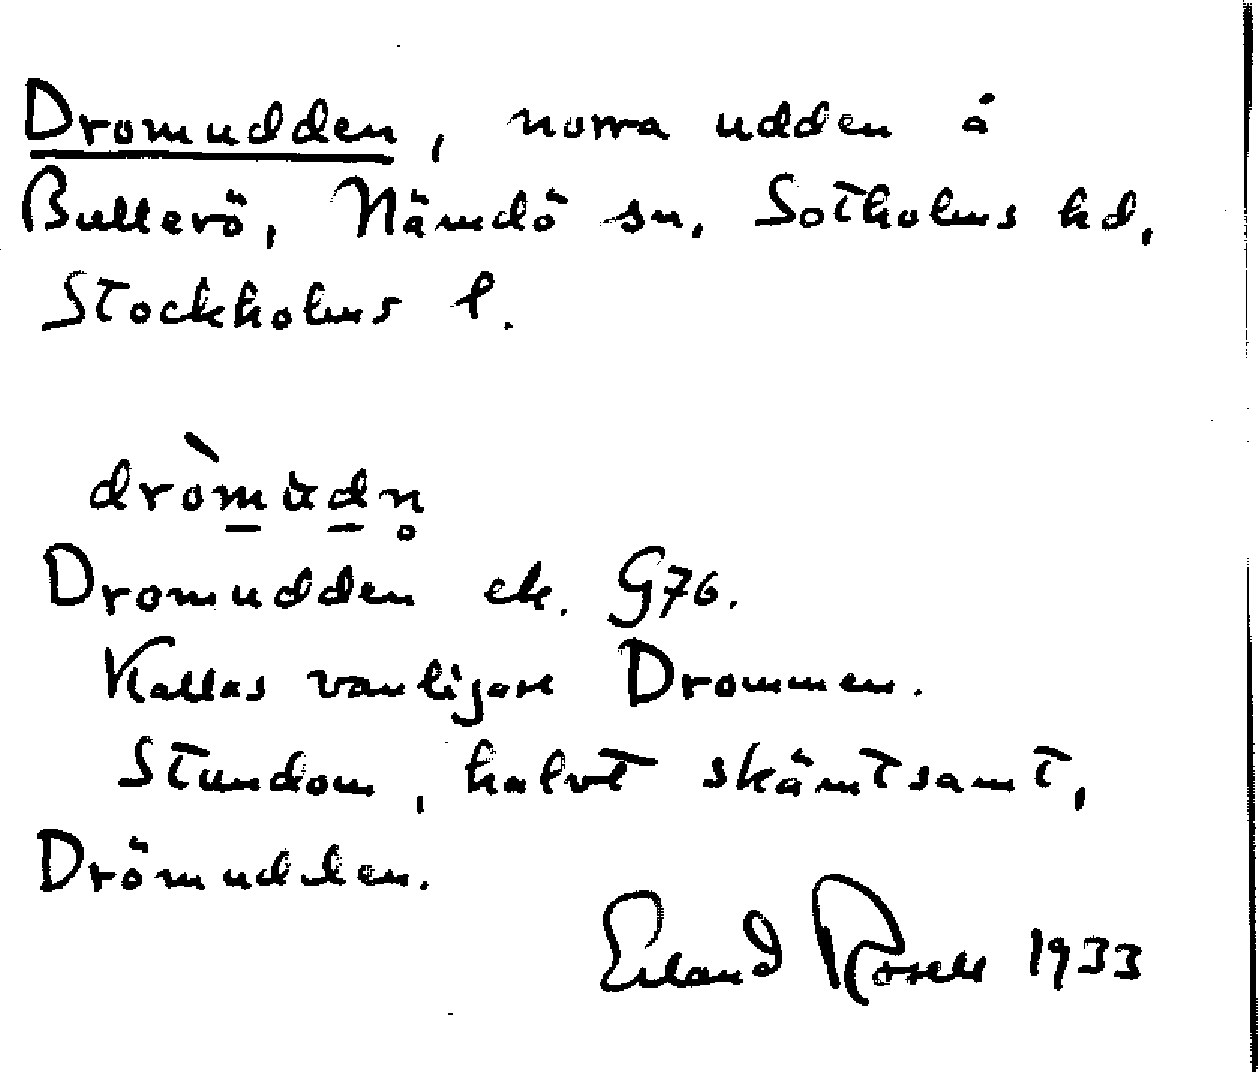 Dromudden, norra udden å
Bullerö, Nämdö sn, Sotholms hd,
Stockholms l.
dròmùdn̥
Dromudden ek. G76.
Kallas vanligare Drommen.
Stundom, halvt skämtsamt,
Drömudden.
Erland Rosell 1933